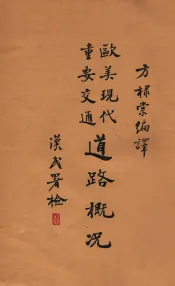 方棣棠編譯
歐美現代
重要交通
道路概況
漢民署檢